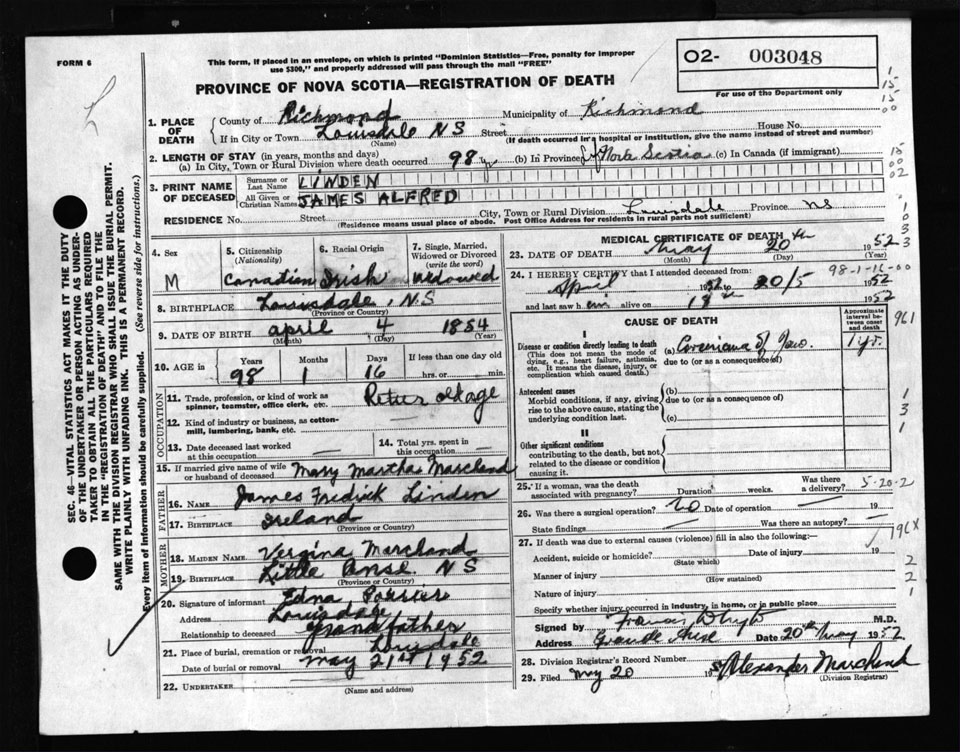 FORM 6
This form, if placed in an envelope, on which is printed "Dominion Statistics—Free, penalty for improper
use $300," and properly addressed will pass through the mail "FREE"
O2- 003048
For use of the Department only
PROVINCE OF NOVA SCOTIA—REGISTRATION OF DEATH
1. PLACE OF DEATH
County of Richmond Municipality of Richmond
If in City or Town Louisdale NS Street House No.
(Name) (If death occurred in a hospital or institution, give the name instead of street and number)
2. LENGTH OF STAY (in years, months and days)
(a) In City, Town or Rural Division where death occurred 98 (b) In Province Nova Scotia (c) In Canada (if immigrant)
3. PRINT NAME OF DECEASED
Surname or Last Name LINDEN
All Given or Christian Names JAMES ALFRED
RESIDENCE No. Street City, Town or Rural Division Louisdale Province NS
(Residence means usual place of abode. Post Office Address for residents in rural parts not sufficient)
4. Sex M
5. Citizenship (Nationality) Canadian
6. Racial Origin Irish
7. Single, Married, Widowed or Divorced (write the word) Widowed
8. BIRTHPLACE Louisdale, N.S
(Province or Country)
9. DATE OF BIRTH april 4 1854
(Month) (Day) (Year)
10. AGE in Years 98 Months 1 Days 16 If less than one day old hrs. or min.
OCCUPATION
11. Trade, profession, or kind of work as spinner, teamster, office clerk, etc.
12. Kind of industry or business, as cotton-mill, lumbering, bank, etc.
13. Date deceased last worked at this occupation
14. Total yrs. spent in this occupation
15. If married give name of wife or husband of deceased Mary Martha Marchand
FATHER
16. NAME James Fredick Linden
17. BIRTHPLACE Ireland
(Province or Country)
MOTHER
18. MAIDEN NAME Vergina Marchand
19. BIRTHPLACE Little Anse N S
(Province or Country)
20. Signature of informant Edna Poirier
Address Louisdale
Relationship to deceased Grandfather
21. Place of burial, cremation or removal Louisdale
Date of burial or removal May 21st 1952
22. UNDERTAKER
(Name and address)
MEDICAL CERTIFICATE OF DEATH
23. DATE OF DEATH May 20th 1952
(Month) (Day) (Year)
98-1-16-00
24. I HEREBY CERTIFY that I attended deceased from:
April 1952 to 20/5 1952
and last saw him alive on 18th 1952
CAUSE OF DEATH
Approximate interval between onset and death
I
Disease or condition directly leading to death
(This does not mean the mode of dying, e.g., heart failure, asthenia, etc. It means the disease, injury, or complication which caused death.)
(a) of Jaw. 1 yr.
due to (or as a consequence of)
961
Antecedent causes
Morbid conditions, if any, giving rise to the above cause, stating the underlying condition last.
(b)
due to (or as a consequence of)
(c)
II
Other significant conditions
contributing to the death, but not related to the disease or condition causing it.
25. If a woman, was the death associated with pregnancy? Duration weeks. Was there a delivery?
5-20-2
26. Was there a surgical operation? Date of operation 19
State findings Was there an autopsy?
27. If death was due to external causes (violence) fill in also the following:—
Accident, suicide or homicide? Date of injury 19
(State which)
Manner of injury
(How sustained)
Nature of injury
Specify whether injury occurred in industry, in home, or in public place
Signed by M.D.
Address Grande Anse Date 20th May 1952
28. Division Registrar's Record Number
29. Filed May 20 19 Alexander Marchand
(Division Registrar)
SEC. 46—VITAL STATISTICS ACT MAKES IT THE DUTY
OF THE UNDERTAKER OR PERSON ACTING AS UNDER-
TAKER TO OBTAIN ALL THE PARTICULARS REQUIRED
IN THE "REGISTRATION OF DEATH" AND TO FILE THE
SAME WITH THE DIVISION REGISTRAR WHO SHALL ISSUE THE BURIAL PERMIT.
WRITE PLAINLY WITH UNFADING INK. THIS IS A PERMANENT RECORD.
Every item of information should be carefully supplied. (See reverse side for instructions.)